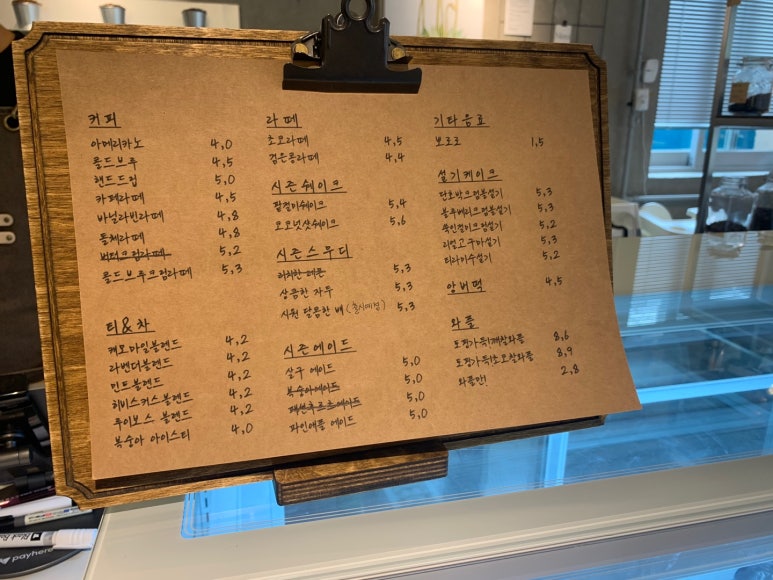 커피
아메리카노 4,0
콜드브루 4,5
핸드드립 5,0
카페라떼 4,5
바닐라빈라떼 4,8
돌체라떼 4,8
버터크림라떼 5,2
콜드브루크림라떼 5,3
티&차
캐모마일블렌드 4,2
라벤더블렌드 4,2
민트블렌드 4,2
히비스커스블렌드 4,2
루이보스 블렌드 4,2
복숭아 아이스티 4,0
라떼
초코라떼 4,5
검은콩라떼 4,4
시즌쉐이크
팥절미쉐이크 5,4
오모넛샷쉐이크 5,6
시즌스무디
5,3
상큼한 자두 5,3
시원 달콤한 배 (출시예정) 5,3
시즌에이드
살구 에이드 5,0
복숭아에이드 5,0
패션후르츠에이드 5,0
파인애플 에이드 5,0
기타음료
뽀로로 1,5
설기케이크
단호박크럼블설기 5,3
블루베리크럼블설기 5,3
쑥인절미크럼설기 5,2
리얼고구마설기 5,3
티라미수설기 5,2
앙버떡 4,5
와플
토핑가득!째참와플 8,6
토핑가득!초코참와플 8,9
와플만! 2,8
payhere